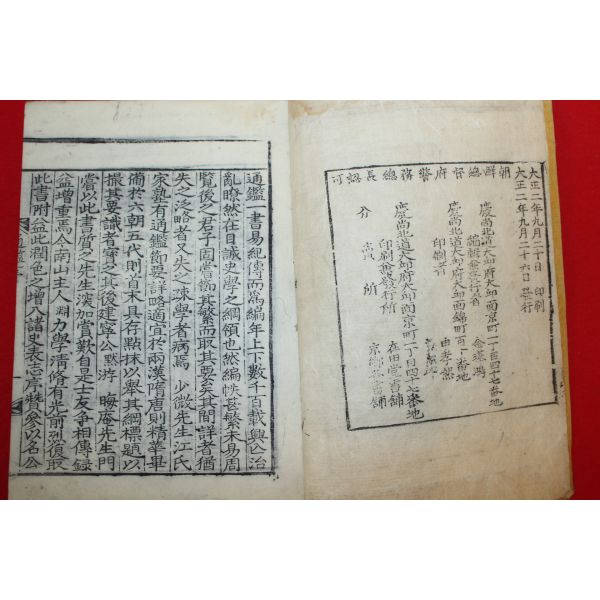 大正二年九月二十日 印刷
大正二年九月二十六日 發行
朝鮮總督府警務總長認可
慶尚北道大邱府大邱南京町一百四十七番地
編輯兼發行者 金璂鴻
慶尚北道大邱府大邱西錦町百卞番地
印刷者 由孝絮
慶尚北道大邱府大邱南京町一丁目四十七番地
印刷兼發行所 在田堂書鋪
分賣所
通鑑一書易紀傳而爲編年上下數千百載興亡治
亂瞭然在目誠史學之綱領也然編帙甚繁未易周
覽後之君子固嘗節其繁而取其要矣其間詳者猶
失之泛略者又失之疎學者病焉 少微先生江氏
家塾有通鑑節要詳略適宜於兩漢隋唐則精華畢
備於六朝五代則首末具存點抹以擧其綱標題以
撮其要識者寶之其後建寧公默游 晦庵先生門
嘗以此書質之先生深加賞歎自是士友爭相傳錄
益增重焉今南山主人淵力學淸脩有光前烈復取
此書附益而潤色之增入諸史表志序贊參以名公
通鑑